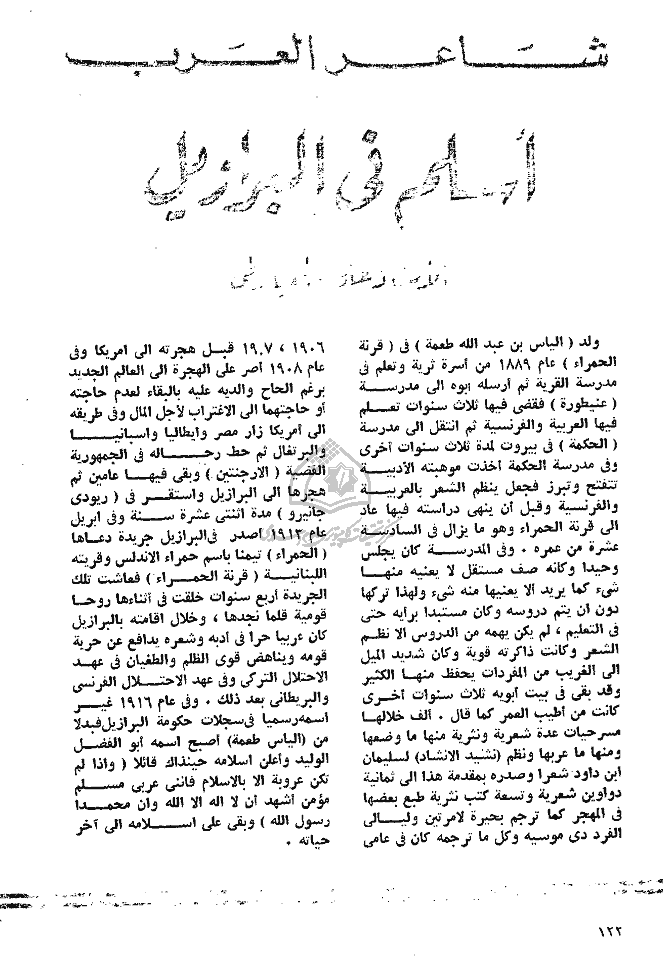 شاعر العرب
أسلم فى البرازيل
ولد ( الياس بن عبد الله طعمة ) فى ( قرنة
الحمراء ) عام ١٨٨٩ من أسرة ثرية وتعلم فى
مدرسة القرية ثم أرسله أبوه الى مدرسة
( عنيطورة ) فقضى فيها ثلاث سنوات تعلم
فيها العربية والفرنسية ثم انتقل الى مدرسة
( الحكمة ) فى بيروت لمدة ثلاث سنوات أخرى
وفى مدرسة الحكمة أخذت موهبته الأدبية
تتفتح وتبرز فجعل ينظم الشعر بالعربية
والفرنسية وقبل أن ينهى دراسته فيها عاد
الى قرنة الحمراء وهو ما يزال فى السادسة
عشرة من عمره . وفى المدرسة كان يجلس
وحيدا وكأنه صف مستقل لا يعنيه منها
شىء كما يريد ألا يعنيها منه شىء ولهذا تركها
دون أن يتم دروسه وكان مستبدا برأيه حتى
فى التعليم ، لم يكن يهمه من الدروس الا نظم
الشعر وكانت ذاكرته قوية وكان شديد الميل
الى الغريب من المفردات يحفظ منها الكثير
وقد بقى فى بيت أبويه ثلاث سنوات أخرى
كانت من أطيب العمر كما قال . ألف خلالها
مسرحيات عدة شعرية ونثرية منها ما وضعها
ومنها ما عربها ونظم (نشيد الانشاد) لسليمان
ابن داود شعرا وصدره بمقدمة هذا الى ثمانية
دواوين شعرية وتسعة كتب نثرية طبع بعضها
فى المهجر كما ترجم بحيرة لامرتين وليالى
الفرد دى موسيه وكل ما ترجمه كان فى عامى
١٩٠٦ ، ١٩٠٧ قبل هجرته الى امريكا وفى
عام ١٩٠٨ أصر على الهجرة الى العالم الجديد
برغم الحاح والديه عليه بالبقاء لعدم حاجته
أو حاجتهما الى الاغتراب لأجل المال وفى طريقه
الى أمريكا زار مصر وايطاليا واسبانيا
والبرتغال ثم حط رحاله فى الجمهورية
الفضية ( الارجنتين ) وبقى فيها عامين ثم
هجرها الى البرازيل واستقر فى ( ريودى
جانيرو ) مدة اثنتى عشرة سنة وفى ابريل
عام ١٩١٣ أصدر فى البرازيل جريدة دعاها
( الحمراء ) تيمنا باسم حمراء الاندلس وقريته
اللبنانية ( قرنة الحمراء ) فعاشت تلك
الجريدة أربع سنوات خلقت فى أثناءها روحا
قومية قلما نجدها ، وخلال اقامته بالبرازيل
كان عربيا حرا فى أدبه وشعره يدافع عن حرية
قومه ويناهض قوى الظلم والطغيان فى عهد
الاحتلال التركى وفى عهد الاحتلال الفرنسى
والبريطانى بعد ذلك . وفى عام ١٩١٦ غير
اسمه رسميا فى سجلات حكومة البرازيل فبدلا
من (الياس طعمة) أصبح اسمه أبو الفضل
الوليد وأعلن اسلامه حينذاك قائلا ( واذا لم
تكن عروبة الا بالاسلام فانى عربى مسلم
مؤمن أشهد أن لا اله الا الله وان محمدا
رسول الله ) وبقى على اسلامه الى آخر
حياته .
١٢٢